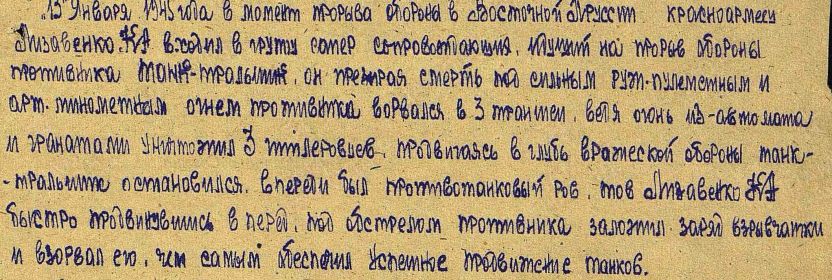 „13 Января 1945 года в момент прорыва обороны в Восточной Пруссии красноармеец
Лизавенко входил в группу сапер сопровотающия, идущий на прорыв обороны
противника танк-тральщик, он презирая смерть под сильным руж-пулеметным и
арт. минометным огнем противника ворвался в 3 траншеи, ведя огонь из-автомата
и гранатами уничтожил 3 гитлеровцев, продвигаясь в глубь вражеской обороны танк-
-тральщик остановился. впереди был противотанковый ров, тов Лизавенко
быстро продвинувшись в перед, под обстрелом противника заложил заряд взрывчатки
и взорвал его, чем самым обеспечил успешное продвижение танков.